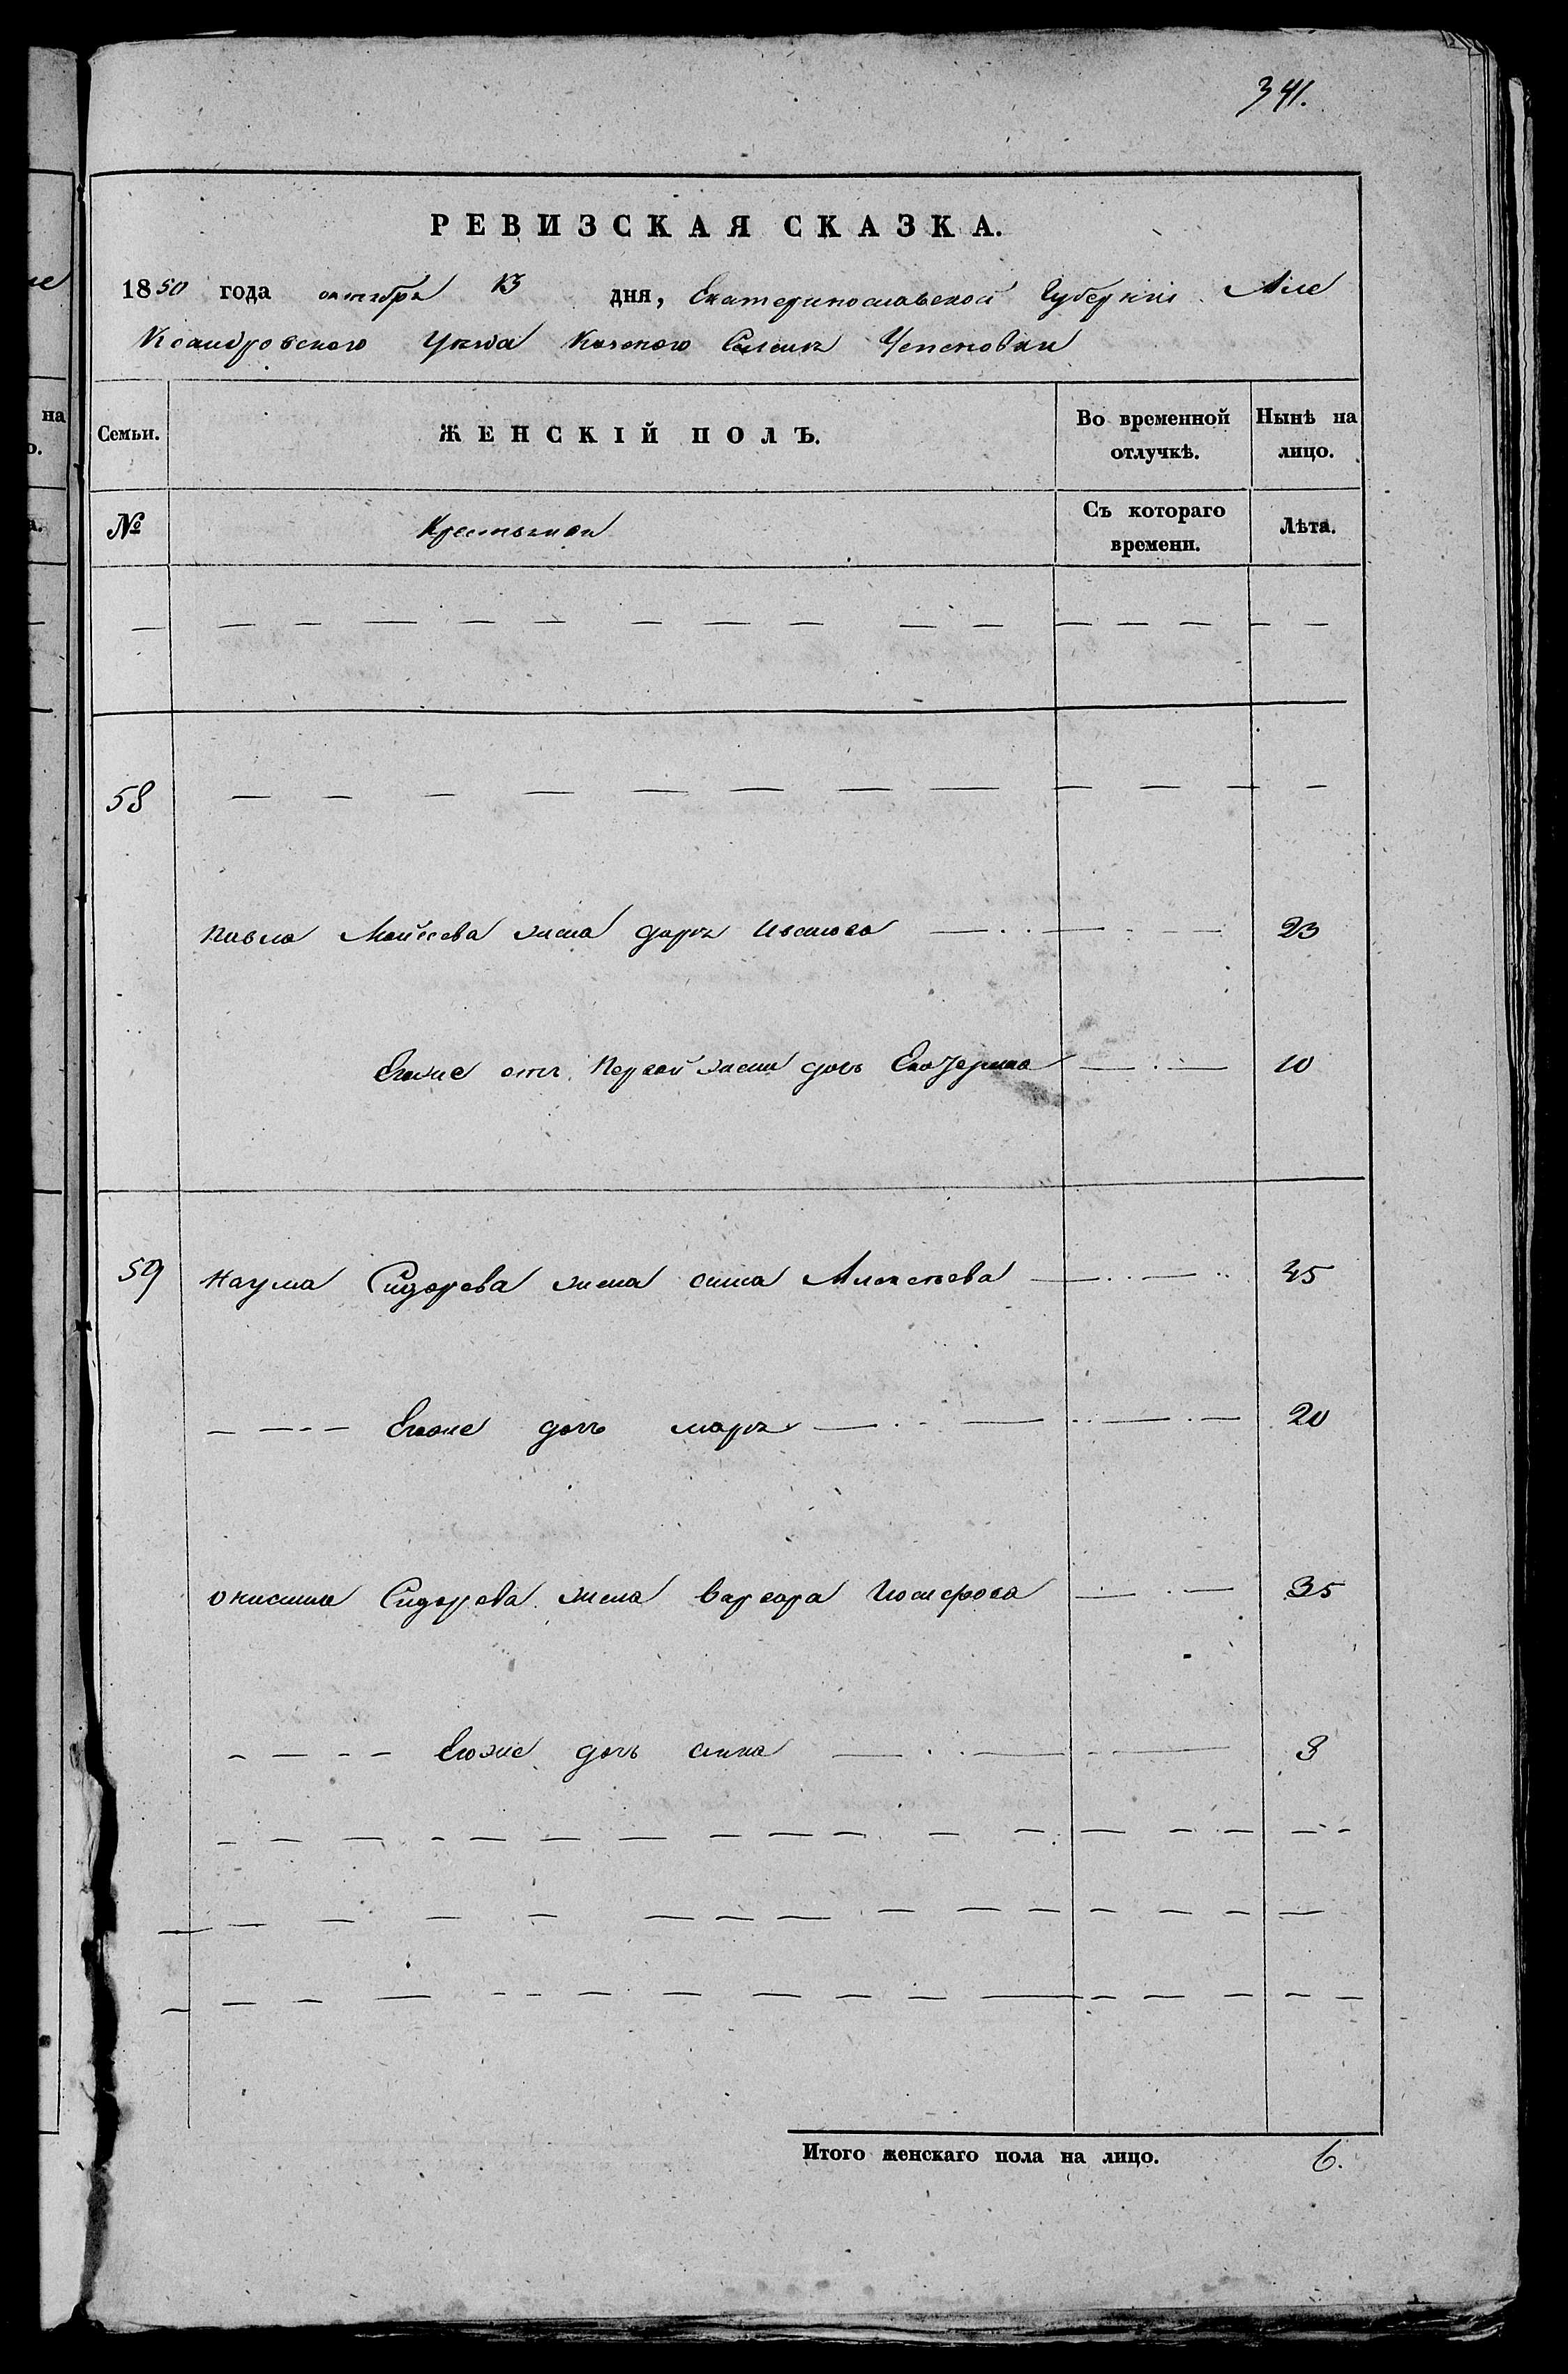 341.
РЕВИЗСКАЯ СКАЗКА.
1850 года октября 13 дня, Екатеринославской Губернии Але
Ксандровского Уезда Селения
Семьи.
ЖЕНСКІЙ ПОЛЪ.
Во временной отлучкѣ.
Нынѣ на лицо.
№
Крестьяне
Съ котораго времени.
Лѣта.
58
Павла Моисеева жена дарья Иванова 23
Егоже отъ Первой жены дочь Екатерина 10
59 Наума Сидорева жена Алексеева 45
Егоже дочь марья 20
онисима Сидорева жена варвара Иосифова 35
Егоже дочь анна 3
Итого женскаго пола на лицо. 6.